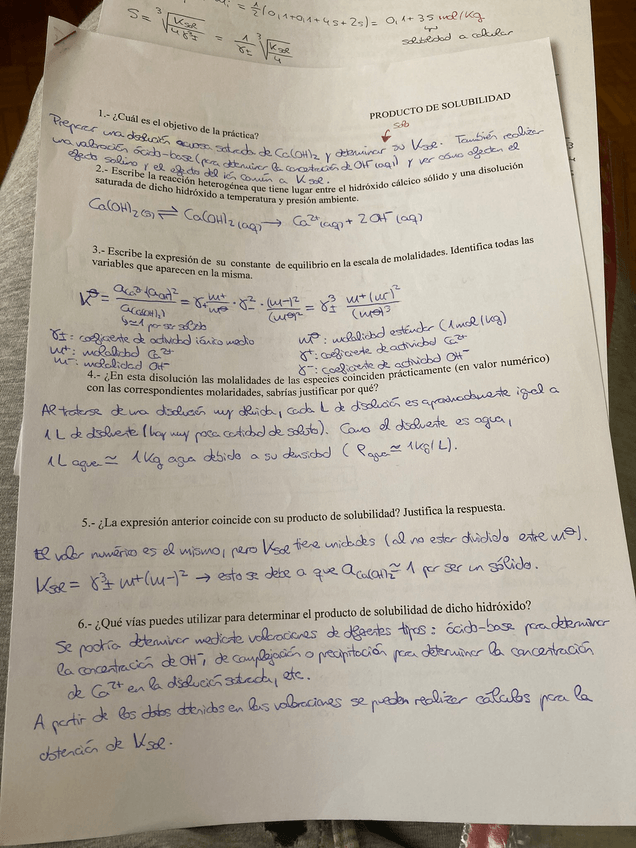 = ½(0,1+0,1+4s+2s) = 0,1+3s mol/Kg
S = ∛(Ksol/4γ³±) = 1/γ± ∛(Ksol/4)
solubilidad a calcular
PRODUCTO DE SOLUBILIDAD
1.- ¿Cuál es el objetivo de la práctica?
Preparar una disolución acuosa saturada de Ca(OH)₂ y determinar su Ksol. También realizar
una valoración ácido-base (para determinar la concentración de OH⁻(aq)) y ver cómo afectan el
efecto salino y el efecto del ión común a Ksol.
2.- Escribe la reacción heterogénea que tiene lugar entre el hidróxido cálcico sólido y una disolución
saturada de dicho hidróxido a temperatura y presión ambiente.
Ca(OH)₂(s) ⇌ Ca(OH)₂(aq) → Ca²⁺(aq) + 2OH⁻(aq)
3.- Escribe la expresión de su constante de equilibrio en la escala de molalidades. Identifica todas las
variables que aparecen en la misma.
K^θ = a_Ca²⁺·(a_OH⁻)²/a_Ca(OH)₂ = γ₊ m⁺/m^θ · γ₋² · (m⁻)²/(m^θ)² = γ±³ m⁺(m⁻)²/(m^θ)³
≃1 por ser sólido
γ±: coeficiente de actividad iónico medio
m⁺: molalidad Ca²⁺
m⁻: molalidad OH⁻
m^θ: molalidad estándar (1mol/Kg)
γ⁺: coeficiente de actividad Ca²⁺
γ⁻: coeficiente de actividad OH⁻
4.- ¿En esta disolución las molalidades de las especies coinciden prácticamente (en valor numérico)
con las correspondientes molaridades, sabrías justificar por qué?
Al tratarse de una disolución muy diluida, cada L de disolución es aproximadamente igual a
1 L de disolvente (hay muy poca cantidad de soluto). Como el disolvente es agua,
1 L agua ≃ 1 Kg agua debido a su densidad (ρagua ≃ 1 Kg/L).
5.- ¿La expresión anterior coincide con su producto de solubilidad? Justifica la respuesta.
El valor numérico es el mismo, pero Ksol tiene unidades (al no estar dividido entre m^θ).
Ksol = γ³± m⁺(m⁻)² → esto se debe a que a_Ca(OH)₂ ≃ 1 por ser un sólido.
6.- ¿Qué vías puedes utilizar para determinar el producto de solubilidad de dicho hidróxido?
Se podría determinar mediante valoraciones de diferentes tipos: ácido-base para determinar
la concentración de OH⁻, de complejación o precipitación para determinar la concentración
de Ca²⁺ en la disolución saturada, etc.
A partir de los datos obtenidos en las valoraciones se pueden realizar cálculos para la
obtención de Ksol.